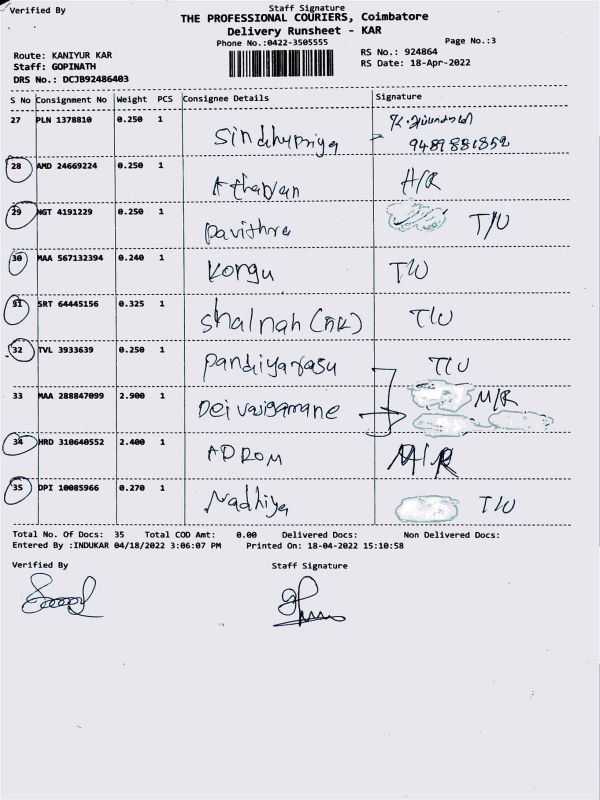 Verified By Staff Signature
THE PROFESSIONAL COURIERS, Coimbatore
Delivery Runsheet - KAR
Phone No.:0422-3505555 Page No.:3
Route: KANIYUR KAR RS No.: 924864
Staff: GOPINATH RS Date: 18-Apr-2022
DRS No.: DCJB92486403
S No Consignment No Weight PCS Consignee Details Signature
27 PLN 1378810 0.250 1 Sindhupriya 9489881852
28 AMD 24669224 0.250 1
29 NGT 4191229 0.250 1 Pavithra T/U
30 MAA 567132394 0.240 1 Kongu T/U
31 SRT 64445156 0.325 1 T/U
32 TVL 3933639 0.250 1 Pandiyarasu T/U
33 MAA 288847099 2.900 1 M/R
34 HRD 310640552 2.400 1 ADROM M/R
35 DPI 10085966 0.270 1 Nadhiya T/U
Total No. Of Docs: 35 Total COD Amt: 0.00 Delivered Docs: Non Delivered Docs:
Entered By :INDUKAR 04/18/2022 3:06:07 PM Printed On: 18-04-2022 15:10:58
Verified By Staff Signature